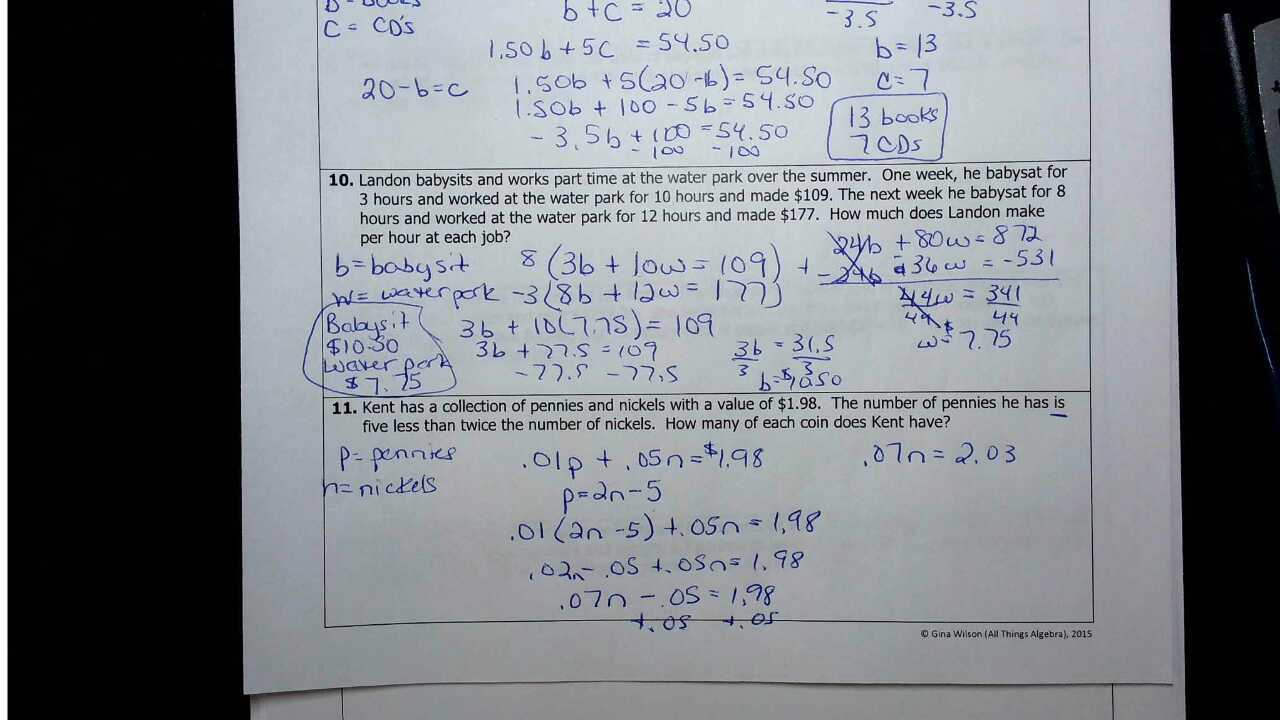 b = books
C = CD's
b + c = 20
-3.5 -3.5
1.50b + 5c = 54.50
b = 13
20 - b = c
1.50b + 5(20 - b) = 54.50
c = 7
1.50b + 100 - 5b = 54.50
13 books
- 3.5b + 100 = 54.50
7 CDs
- 100 - 100
10. Landon babysits and works part time at the water park over the summer. One week, he babysat for
3 hours and worked at the water park for 10 hours and made $109. The next week he babysat for 8
hours and worked at the water park for 12 hours and made $177. How much does Landon make
per hour at each job?
b = babysit
8 (3b + 10w = 109)
+
24b + 80w = 872
w = waterpark
-3(8b + 12w = 177)
-24b - 36w = -531
44w = 341
44 44
w = $7.75
Babysit
$10.50
water park
$7.75
3b + 10(7.75) = 109
3b + 77.5 = 109
-77.5 -77.5
3b = 31.5
3 3
b = $10.50
11. Kent has a collection of pennies and nickels with a value of $1.98. The number of pennies he has is
five less than twice the number of nickels. How many of each coin does Kent have?
p = pennies
n = nickels
.01p + .05n = $1.98
.07n = 2.03
p = 2n - 5
.01(2n - 5) + .05n = 1.98
.02n - .05 + .05n = 1.98
.07n - .05 = 1.98
+.05 +.05
© Gina Wilson (All Things Algebra), 2015